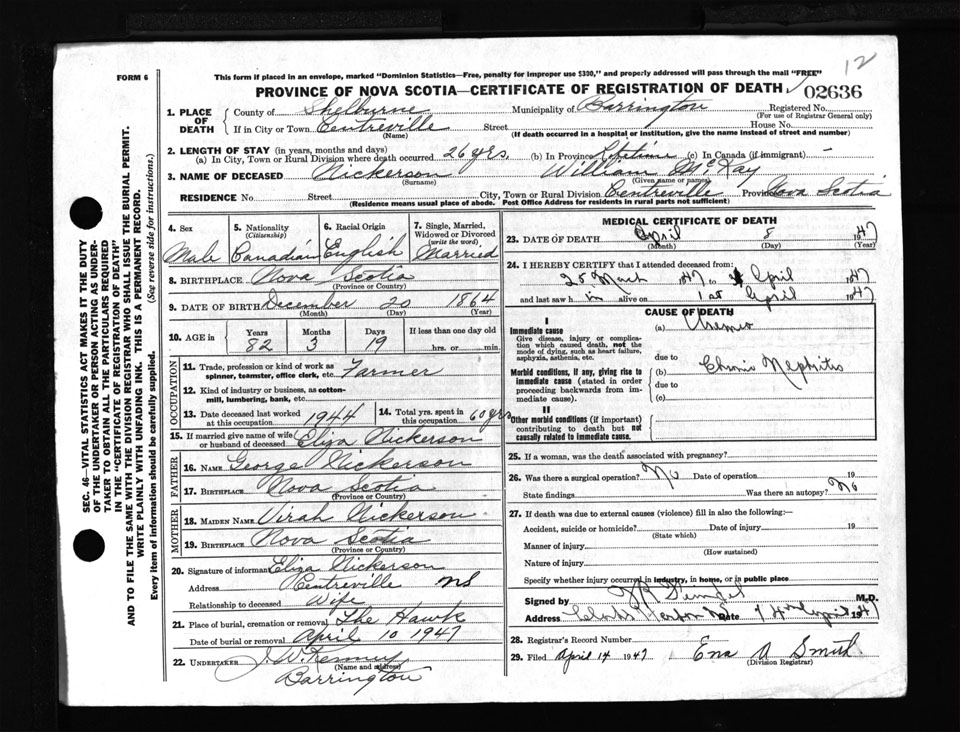 12
FORM 6
This form if placed in an envelope, marked "Dominion Statistics—Free, penalty for improper use $300," and properly addressed will pass through the mail "FREE"
PROVINCE OF NOVA SCOTIA—CERTIFICATE OF REGISTRATION OF DEATH
02636
SEC. 46—VITAL STATISTICS ACT MAKES IT THE DUTY
OF THE UNDERTAKER OR PERSON ACTING AS UNDER-
TAKER TO OBTAIN ALL THE PARTICULARS REQUIRED
IN THE "CERTIFICATE OF REGISTRATION OF DEATH"
AND TO FILE THE SAME WITH THE DIVISION REGISTRAR WHO SHALL ISSUE THE BURIAL PERMIT.
WRITE PLAINLY WITH UNFADING INK. THIS IS A PERMANENT RECORD.
Every item of information should be carefully supplied. (See reverse side for instructions.)
1. PLACE OF DEATH
County of Shelburne Municipality of Barrington Registered No.
(For use of Registrar General only)
If in City or Town Centreville Street House No.
(Name) (If death occurred in a hospital or institution, give the name instead of street and number)
2. LENGTH OF STAY (in years, months and days)
(a) In City, Town or Rural Division where death occurred 26 yrs. (b) In Province Lifetime (c) In Canada (if immigrant) —
3. NAME OF DECEASED Nickerson William McKay
(Surname) (Given name or names)
RESIDENCE No. Street City, Town or Rural Division Centreville Province Nova Scotia
(Residence means usual place of abode. Post Office Address for residents in rural parts not sufficient)
4. Sex
Male
5. Nationality
(Citizenship)
Canadian
6. Racial Origin
English
7. Single, Married,
Widowed or Divorced
(write the word)
Married
8. BIRTHPLACE Nova Scotia
(Province or Country)
9. DATE OF BIRTH December 20 1864
(Month) (Day) (Year)
10. AGE in
Years Months Days If less than one day old
82 3 19 hrs. or min.
OCCUPATION
11. Trade, profession or kind of work as
spinner, teamster, office clerk, etc. Farmer
12. Kind of industry or business, as cotton-
mill, lumbering, bank, etc.
13. Date deceased last worked
at this occupation 1944
14. Total yrs. spent in
this occupation 60 yrs
15. If married give name of wife
or husband of deceased Eliza Nickerson
FATHER
16. NAME George Nickerson
17. BIRTHPLACE Nova Scotia
(Province or Country)
MOTHER
18. MAIDEN NAME Virah Nickerson
19. BIRTHPLACE Nova Scotia
(Province or Country)
20. Signature of informant Eliza Nickerson
Address Centreville NS
Relationship to deceased Wife
21. Place of burial, cremation or removal The Hawk
Date of burial or removal April 10 1947
22. UNDERTAKER J. W. Kenney
(Name and address)
Barrington
MEDICAL CERTIFICATE OF DEATH
23. DATE OF DEATH April 8 1947
(Month) (Day) (Year)
24. I HEREBY CERTIFY that I attended deceased from:
25 March 1947 to April 1947
and last saw him alive on 1st April 1947
CAUSE OF DEATH
I
Immediate cause
Give disease, injury or complica-
tion which caused death, not the
mode of dying, such as heart failure,
asphyxia, asthenia, etc.
(a) Uremia
due to
Morbid conditions, if any, giving rise to
immediate cause (stated in order
proceeding backwards from im-
mediate cause).
(b) Chronic Nephritis
due to
(c)
II
Other morbid conditions (if important)
contributing to death but not
causally related to immediate cause.
25. If a woman, was the death associated with pregnancy?
26. Was there a surgical operation? No Date of operation 19
State findings Was there an autopsy? No
27. If death was due to external causes (violence) fill in also the following:—
Accident, suicide or homicide? Date of injury 19
(State which)
Manner of injury
(How sustained)
Nature of injury
Specify whether injury occurred in industry, in home, or in public place
Signed by M.D.
Address Date 14th April 1947
28. Registrar's Record Number
29. Filed April 14 1947 Ena A Smith
(Division Registrar)